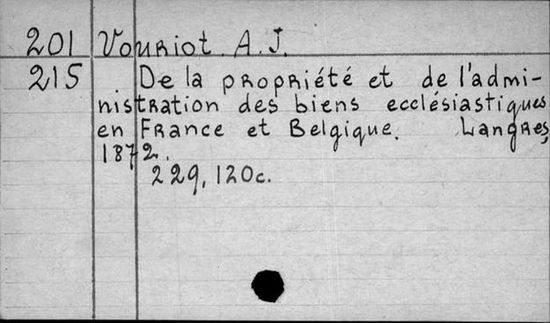 201 Vouriot A.J.
215 De la propriété et de l'admi-
nistration des biens ecclésiastiques
en France et Belgique. Langres,
1872.
229, 120c.